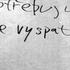 otřebuj
e vyspat